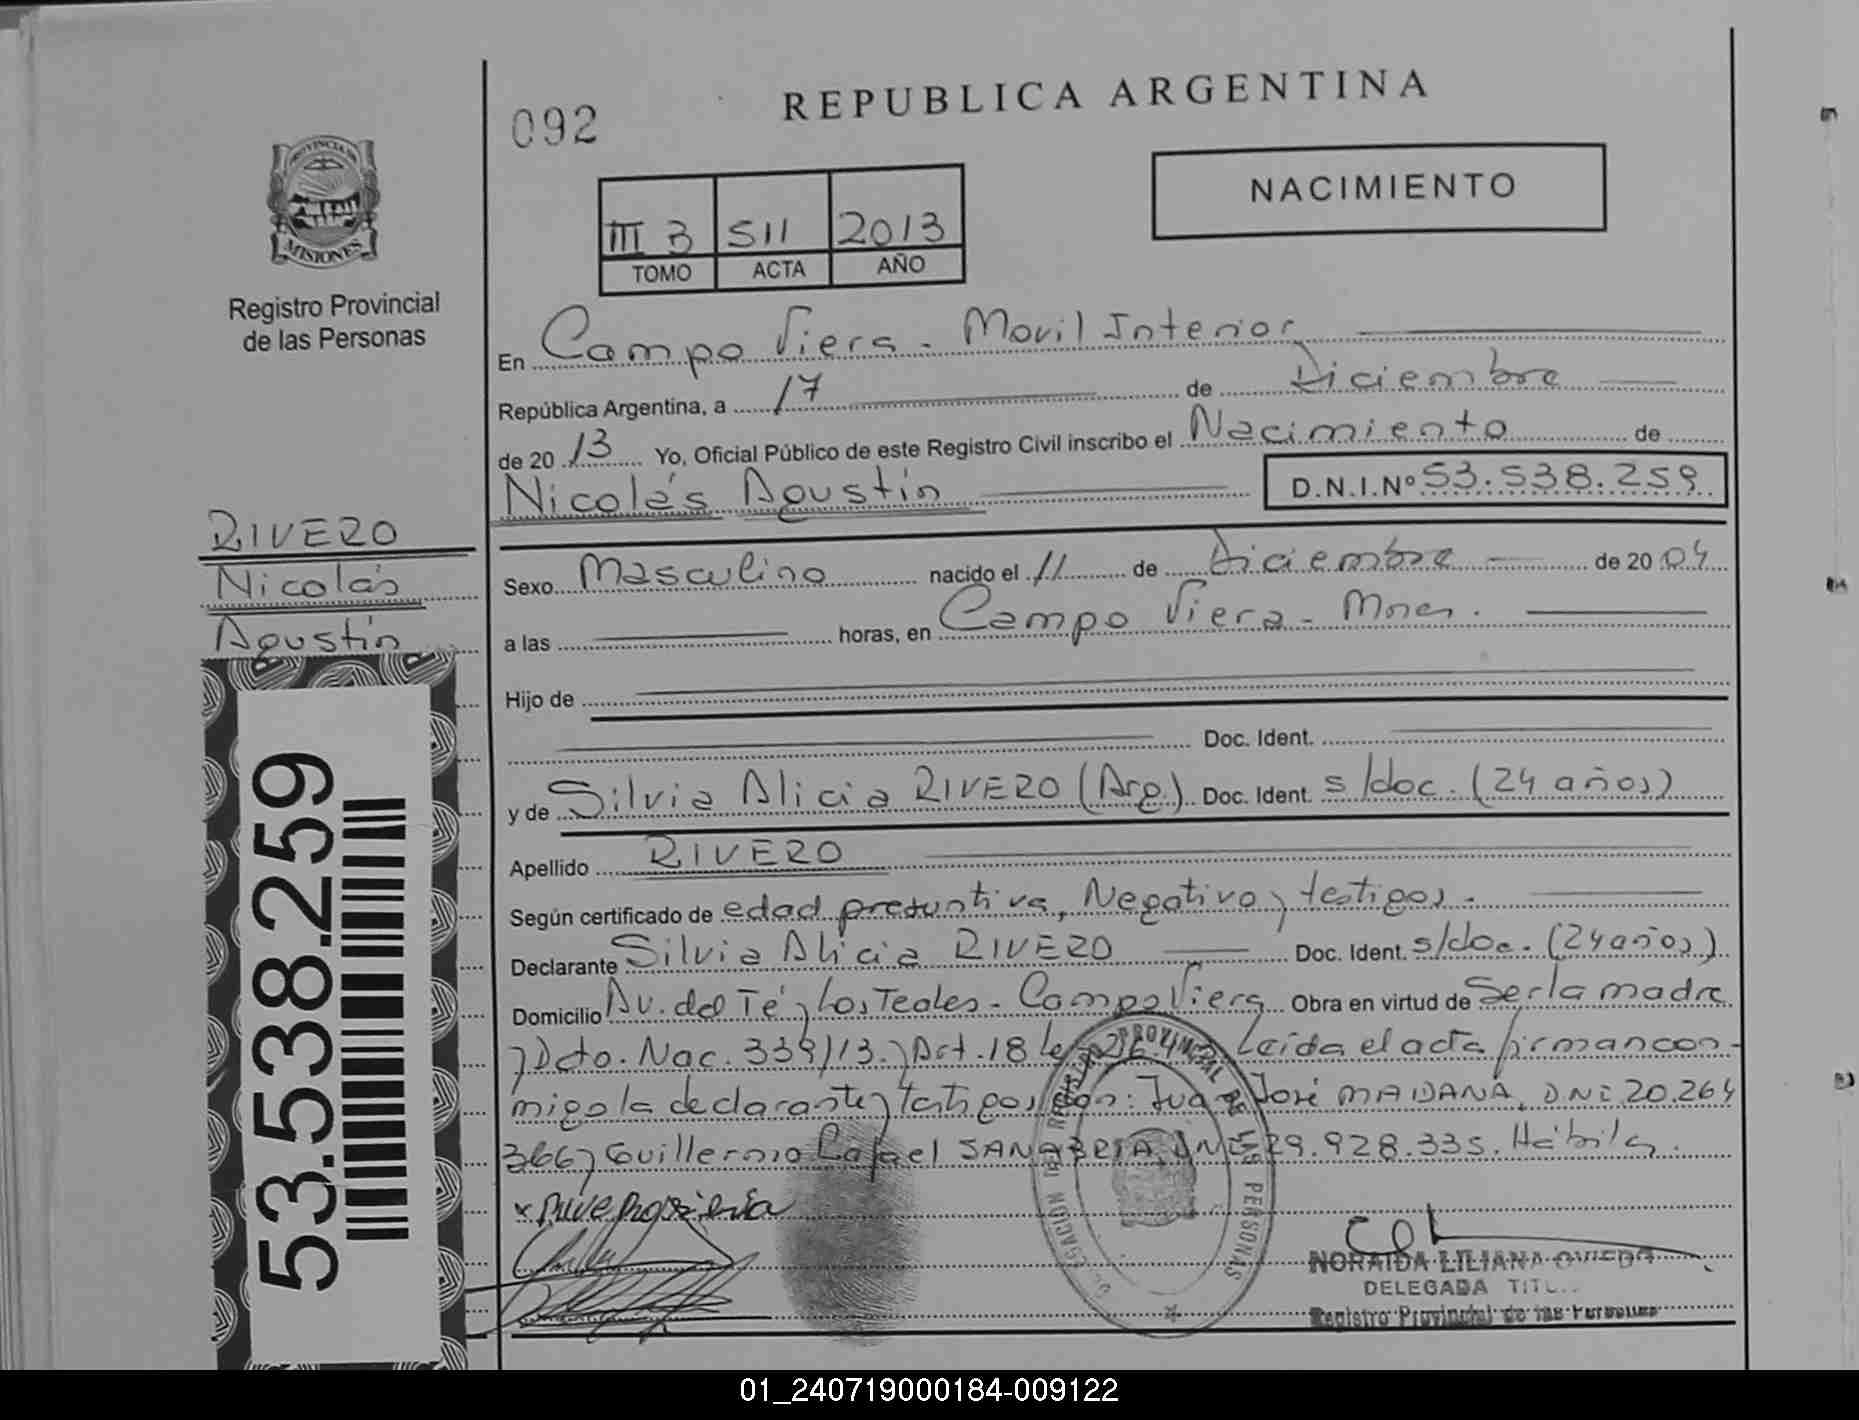 092
REPUBLICA ARGENTINA
NACIMIENTO
PROVINCIA DE
MISIONES
Registro Provincial
de las Personas
III B 511 2013
TOMO ACTA AÑO
En Campo Viera - Movil Interior
República Argentina, a 17 de Diciembre
de 2013 Yo, Oficial Público de este Registro Civil inscribo el Nacimiento de
Nicolás Agustín D.N.I.Nº 53.538.259
RIVERO
Nicolás
Agustín
53.538.259
Sexo Masculino nacido el 11 de Diciembre de 2004
a las horas, en Campo Viera - Mnes.
Hijo de
Doc. Ident.
y de Silvia Alicia RIVERO (Arg.) Doc. Ident. s/doc. (24 años)
Apellido RIVERO
Según certificado de edad presuntiva, Negativo y testigos.
Declarante Silvia Alicia RIVERO Doc. Ident. s/doc. (24 años)
Domicilio Av. del Té y Los Teales - Campo Viera Obra en virtud de Ser la madre
y Dcto. Nac. 339/13 y Art. 18 Leída el acta firman con-
migo la declarante y testigos don: Juan José MAIDANA, DNI 20.264
366 y Guillermo Rafael SANABRIA, DNI 29.928.335. Hábiles.
PROVINCIAL DE LAS PERSONAS
NORAIDA LILIANA OVIEDO
DELEGADA TITU
Registro Provincial de las Personas
01_240719000184-009122